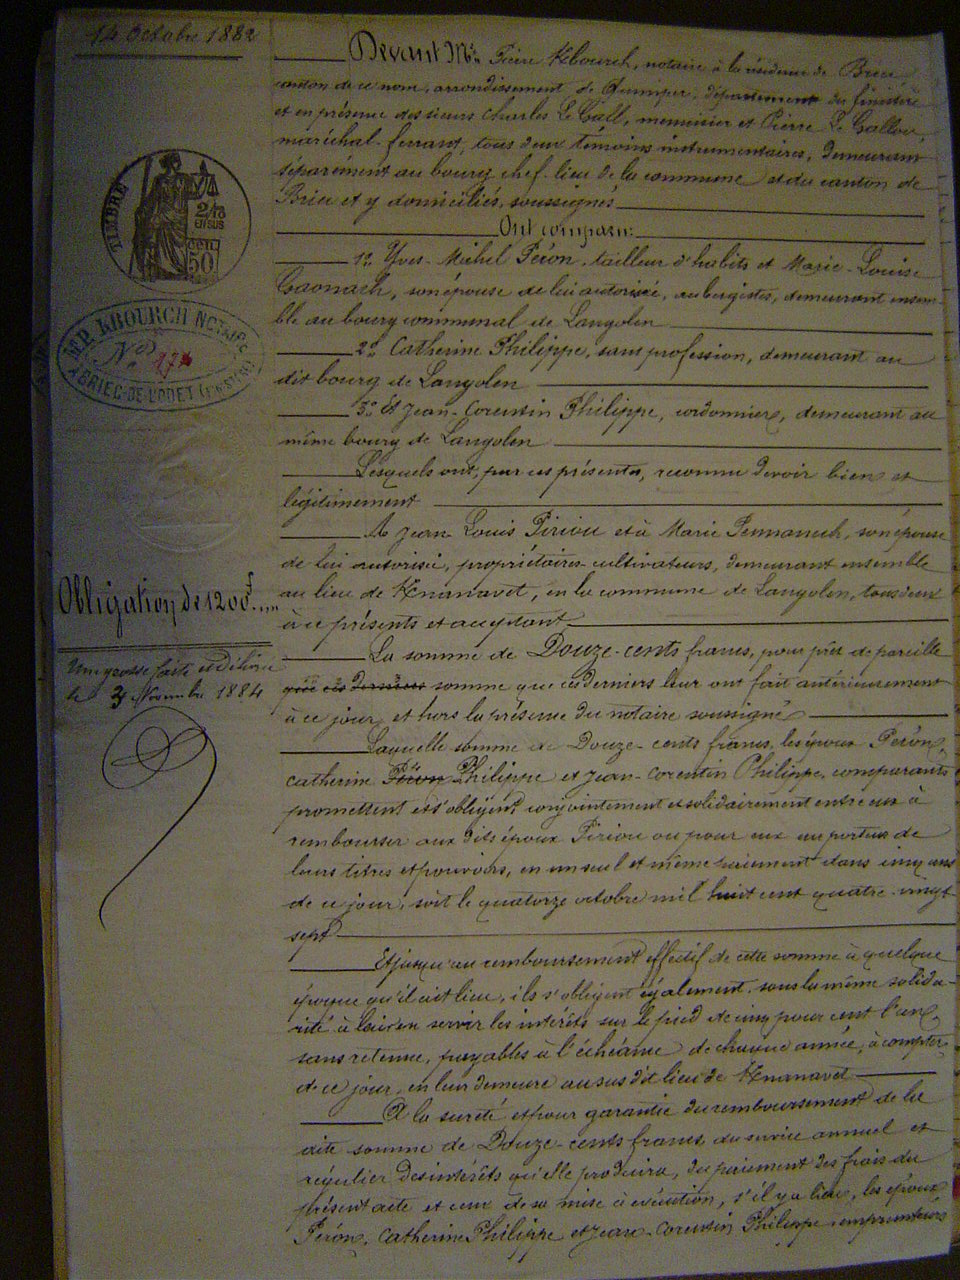 14 Octobre 1882
Devant Me. Pierre Kbourch, notaire à la résidence de Briec
canton de ce nom, arrondissement de Quimper, département du finistère
et en présence des sieurs Charles Le Gall, menuisier et Pierre Le Gallou
maréchal-ferrant, tous deux témoins instrumentaires, demeurant
séparément au bourg chef-lieu de la commune et du canton de
Briec et y domiciliés, soussignés
Ont comparu:
1o. Yves-Michel Péron, tailleur d'habits et Marie-Louise
Caonach, son épouse de lui autorisée, aubergistes, demeurant ensem-
ble au bourg communal de Langolen
2o. Catherine Philippe, sans profession, demeurant au
dit bourg de Langolen
3o. Et Jean-Corentin Philippe, cordonnier, demeurant au
même bourg de Langolen
Lesquels ont, par ces présentes, reconnu devoir bien et
légitimement
A Jean Louis Piriou et à Marie Pennanech, son épouse
de lui autorisée, propriétaires-cultivateurs, demeurant ensemble
au lieu de Knanavet, en la commune de Langolen, tous deux
à ce présents et acceptant
La somme de Douze-cents francs, pour prêt de pareille
que ces derniers somme que ces derniers leur ont fait antérieurement
à ce jour, et hors la présence du notaire soussigné
Laquelle somme de Douze-cents francs, les époux Péron,
Catherine Philippe et Jean-Corentin Philippe, comparants
promettent et s'obligent conjointement et solidairement entre eux à
rembourser aux dits époux Piriou ou pour eux au porteur de
leurs titres et pouvoirs, en un seul et même paiement dans cinq ans
de ce jour, soit le quatorze octobre mil huit cent quatre-vingt
sept
Et jusqu'au remboursement effectif de cette somme à quelque
époque qu'il ait lieu, ils s'obligent également sous la même solida-
rité à leur en servir les intérêts sur le pied de cinq pour cent l'an,
sans retenue, payables à l'échéance de chaque année, à compter
de ce jour, en leur demeure au susdit lieu de Knanavet
A la sureté et pour garantie du remboursement de la
dite somme de Douze-cents francs du service annuel et
régulier des intérêts qu'elle produira, du paiement des frais du
présent acte et ceux de sa mise à exécution, s'il y a lieu, les époux
Péron, Catherine Philippe et Jean-Corentin Philippe emprunteurs
TIMBRE
2/10
EN SUS
CENT.
50
MP. KBOURCH NOTAIRE
No.
A BRIEC-DE-L'ODET (FINISTÈRE)
Obligation de 1200f....
Une grosse faite et délivrée
le 3 Novembre 1884